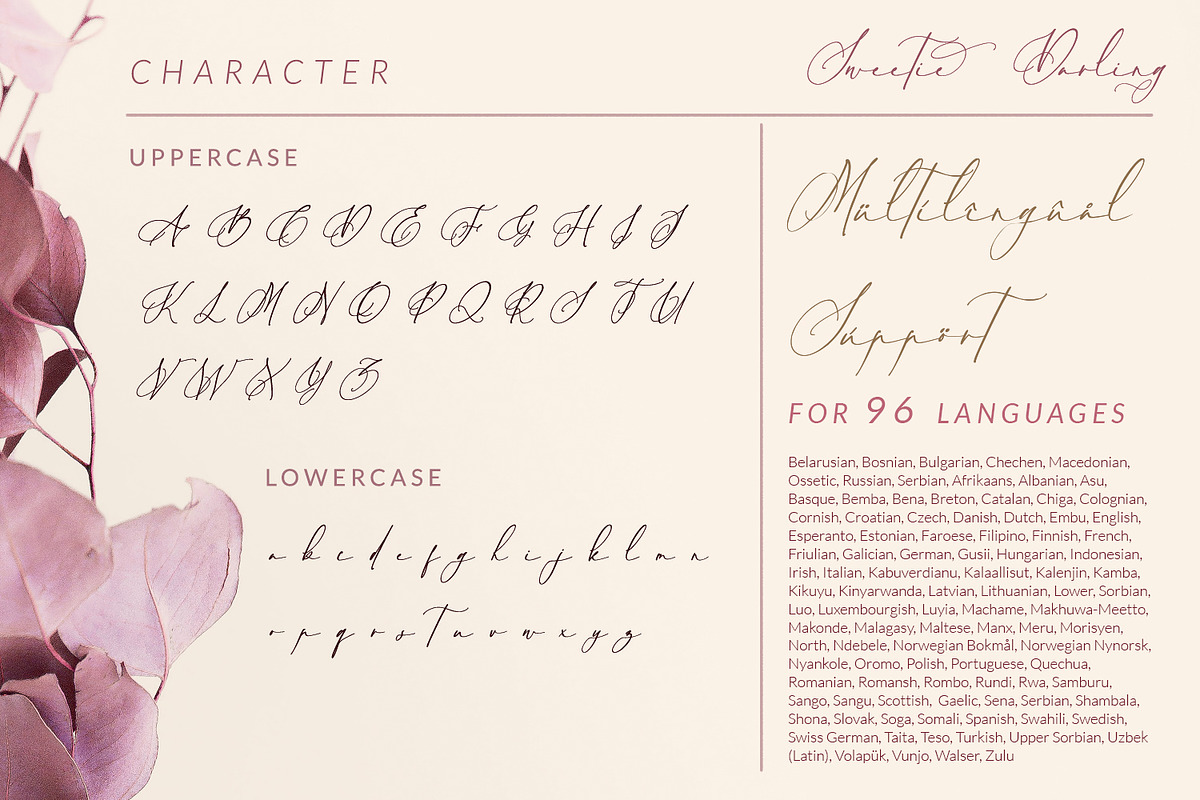 CHARACTER
Sweetie Darling
UPPERCASE
A B C D E F G H I J
K L M N O P Q R S T U
V W X Y Z
LOWERCASE
a b c d e f g h i j k l m n
o p q r s t u v w x y z
Múltílîngûàl
Súppört
FOR 96 LANGUAGES
Belarusian, Bosnian, Bulgarian, Chechen, Macedonian,
Ossetic, Russian, Serbian, Afrikaans, Albanian, Asu,
Basque, Bemba, Bena, Breton, Catalan, Chiga, Colognian,
Cornish, Croatian, Czech, Danish, Dutch, Embu, English,
Esperanto, Estonian, Faroese, Filipino, Finnish, French,
Friulian, Galician, German, Gusii, Hungarian, Indonesian,
Irish, Italian, Kabuverdianu, Kalaallisut, Kalenjin, Kamba,
Kikuyu, Kinyarwanda, Latvian, Lithuanian, Lower, Sorbian,
Luo, Luxembourgish, Luyia, Machame, Makhuwa-Meetto,
Makonde, Malagasy, Maltese, Manx, Meru, Morisyen,
North, Ndebele, Norwegian Bokmål, Norwegian Nynorsk,
Nyankole, Oromo, Polish, Portuguese, Quechua,
Romanian, Romansh, Rombo, Rundi, Rwa, Samburu,
Sango, Sangu, Scottish, Gaelic, Sena, Serbian, Shambala,
Shona, Slovak, Soga, Somali, Spanish, Swahili, Swedish,
Swiss German, Taita, Teso, Turkish, Upper Sorbian, Uzbek
(Latin), Volapük, Vunjo, Walser, Zulu